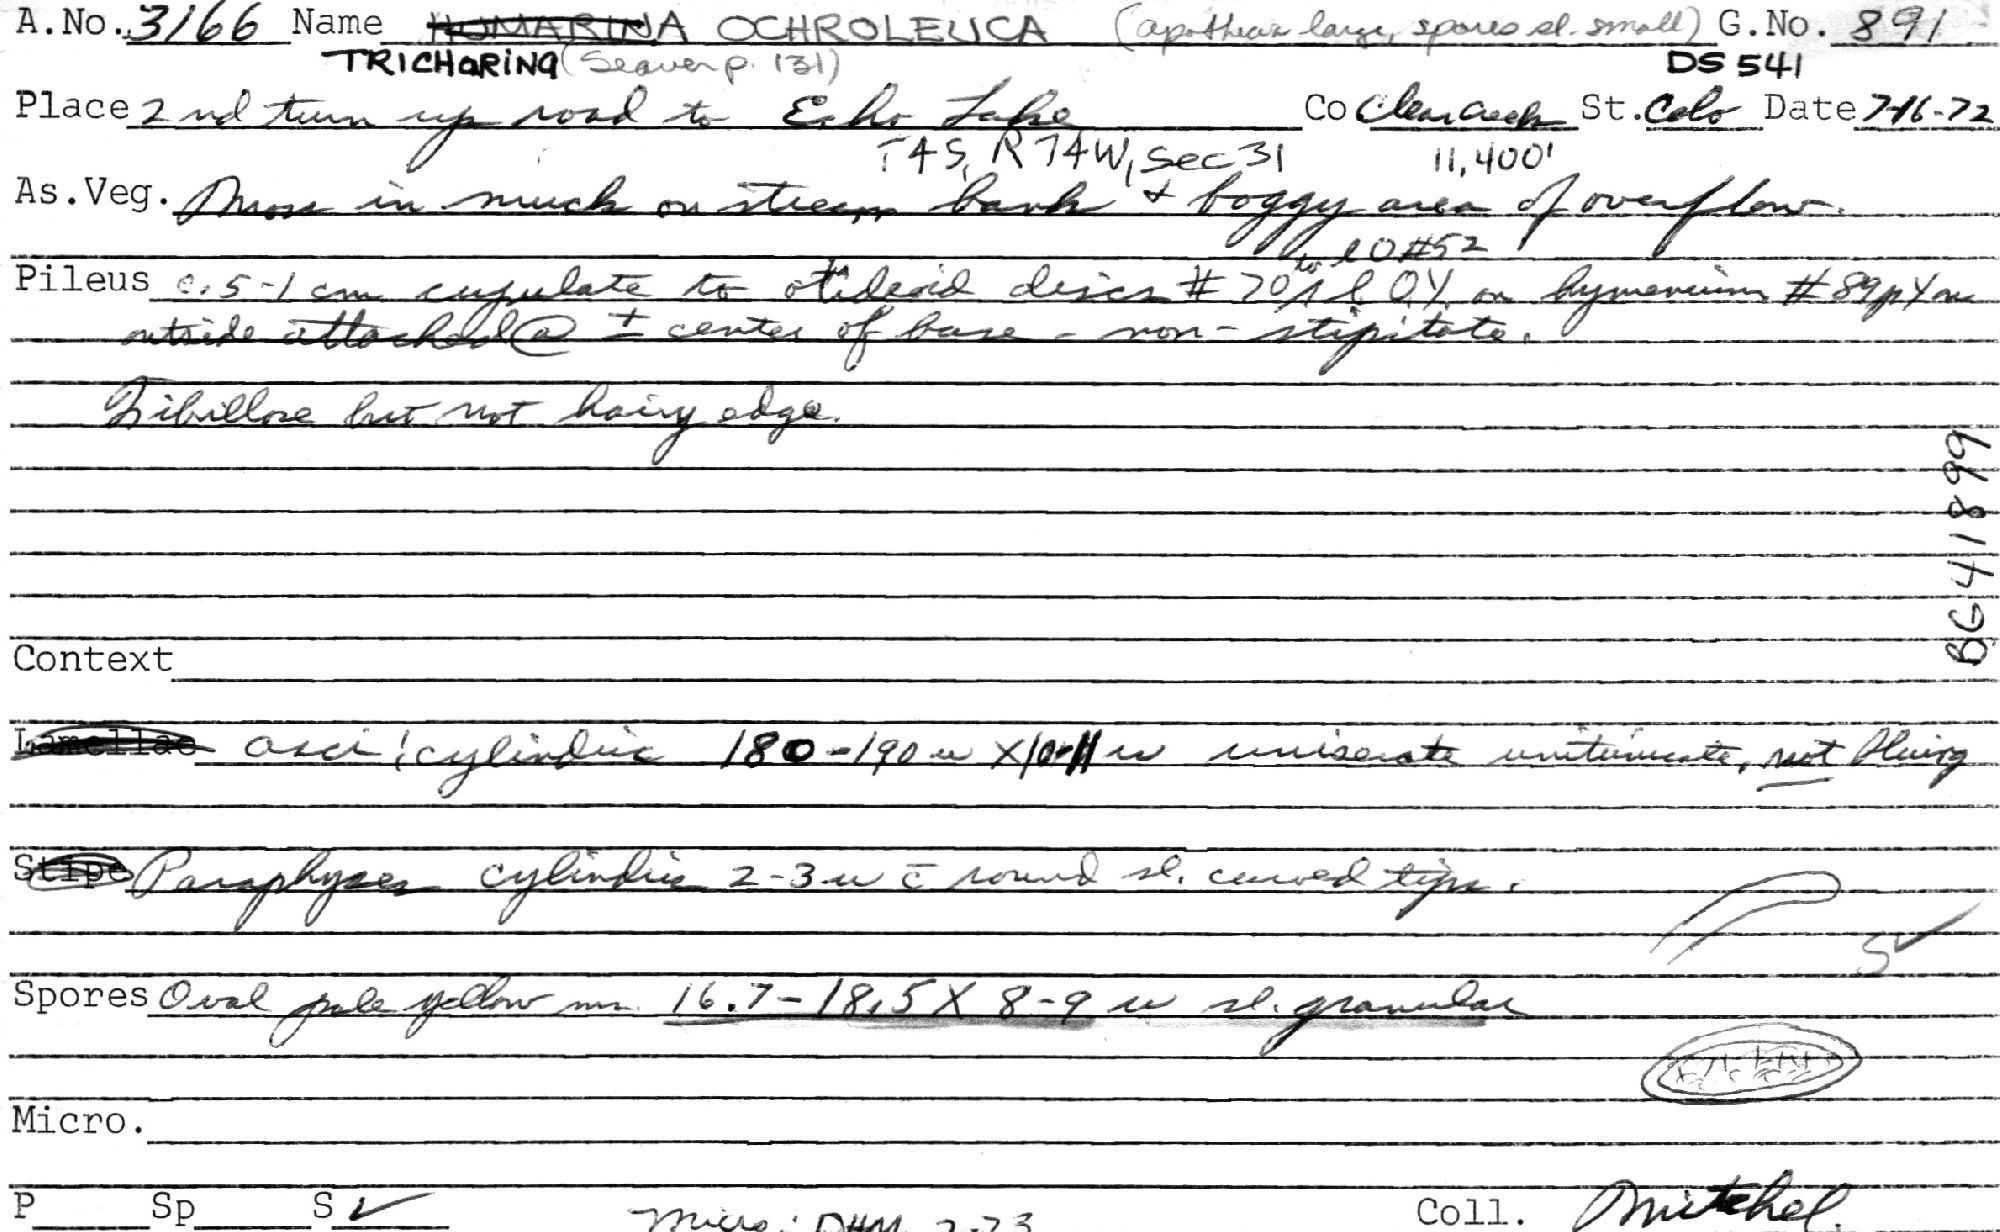 A.No. 3166 Name HUMARINA OCHROLEUCA (apothecia large, spores sl. small) G.No. 891
TRICHARINA (Seaver p. 131) DS 541
Place 2nd turn up road to Echo Lake Co Clear Creek St. Colo Date 7-16-72
T4S, R74W, Sec 31 11,400'
As.Veg. Moss in muck on stream bank + boggy area of overflow.
to l O #52
Pileus 0.5-1 cm cupulate to otideoid discs #70 l OY on hymenium #89 p Y on
outside attached @ ± center of base - non-stipitate.
Fibillose but not hairy edge.
BG41899
Context
Lamellae asci: cylindric 180-190 u X 10-11 u uniseriate unitunicate, not bluing
Stipe Paraphyses cylindric 2-3 u c̄ round sl. curved tips.
S
Spores Oval pale yellow 16.7-18.5 X 8-9 u sl. granular
Micro.
P Sp S ✓ Micro: DHM 2-73 Coll. Mitchel